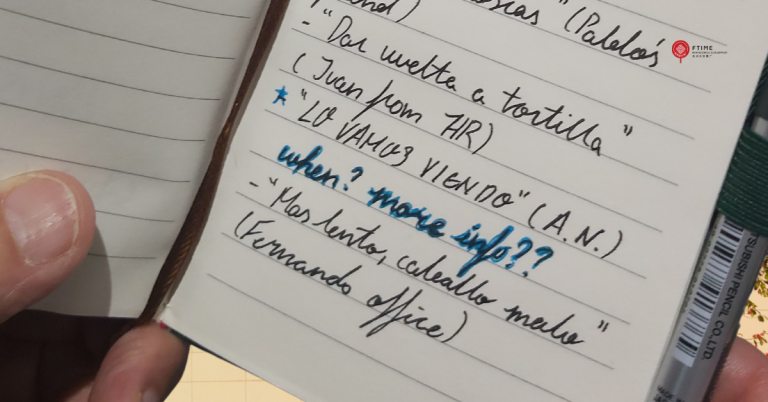 (Pablo's
- "Dar vuelta a tortilla"
(Ivan from HR)
* "LO VAMOS VIENDO" (A.N.)
when? more info??
- "Mas lento, caballo malo"
(Fernando office)
FTIME
SUBISHI PENCIL CO., LTD.